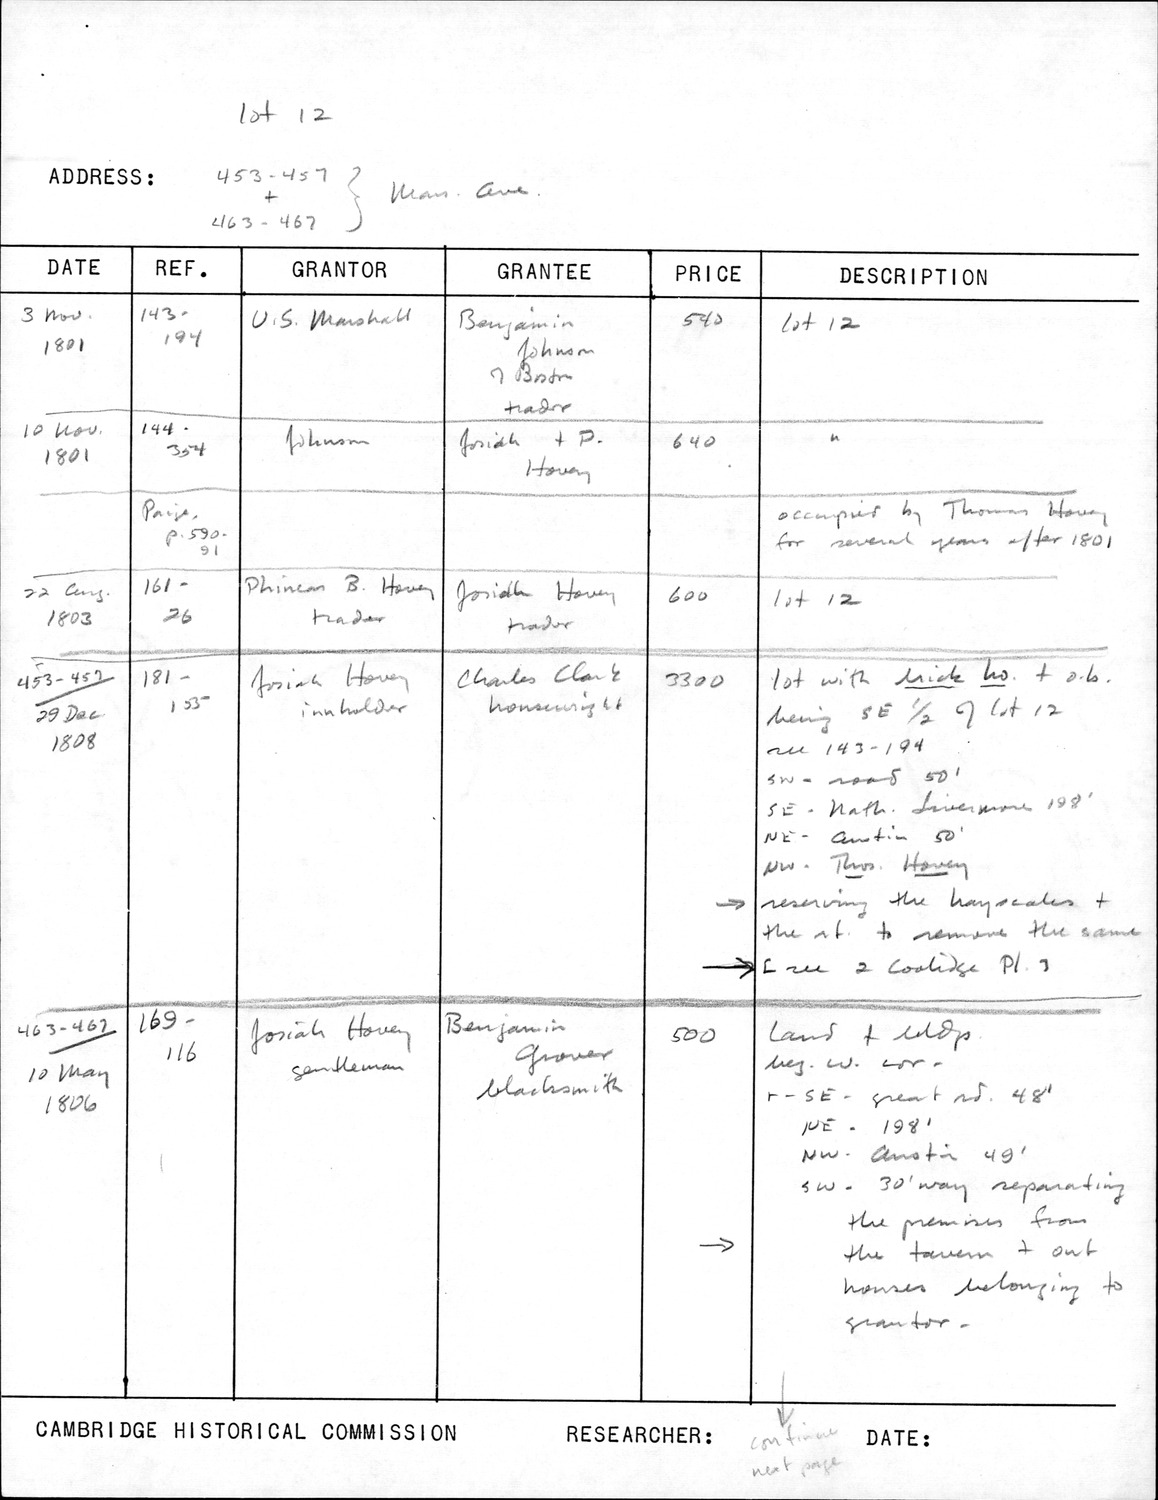 lot 12
ADDRESS: 453-457 + 463-467 } Mass. Ave.
DATE REF. GRANTOR GRANTEE PRICE DESCRIPTION
3 Nov. 1801
143-194
U.S. Marshall
Benjamin
Johnson
of Boston
trader
540
lot 12
10 Nov. 1801
144-354
Johnson
Josiah + P.
Hovey
640
"
Paige,
p. 590-
91
occupied by Thomas Hovey
for several years after 1801
22 Aug.
1803
161-
26
Phineas B. Hovey
trader
Josiah Hovey
trader
600
lot 12
453-457
29 Dec
1808
181-
155
Josiah Hovey
innholder
Charles Clark
housewright
3300
lot with brick ho. + o.b.
being SE 1/2 of lot 12
see 143-194
SW - road 50'
SE - Nath. Livermore 198'
NE - Austin 50'
NW - Thos. Hovey
→ reserving the hayscales +
the rt. to remove the same
→ [ see 2 Coolidge Pl. ]
463-467
10 May
1806
169-
116
Josiah Hovey
gentleman
Benjamin
Grover
blacksmith
500
Land + bldgs.
beg. w. cor-
r - SE - great rd. 48'
NE - 198'
NW - Austin 49'
SW - 30' way separating
the premises from
→ the tavern + out
houses belonging to
grantor -
CAMBRIDGE HISTORICAL COMMISSION RESEARCHER: DATE:
continue
next page